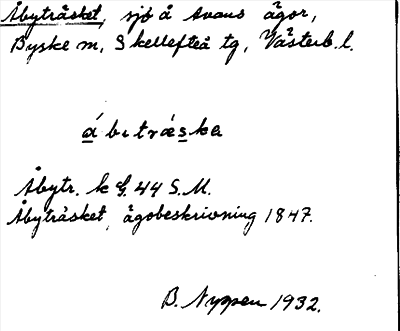 Åbyträsket, sjö å Avans ägor,
Byske sn, Skellefteå tg, Västerb. l.
ábitrǽska
Åbytr. k G. 44 S.M.
Åbyträsket, ägobeskrivning 1847.
B. Nygren 1932.